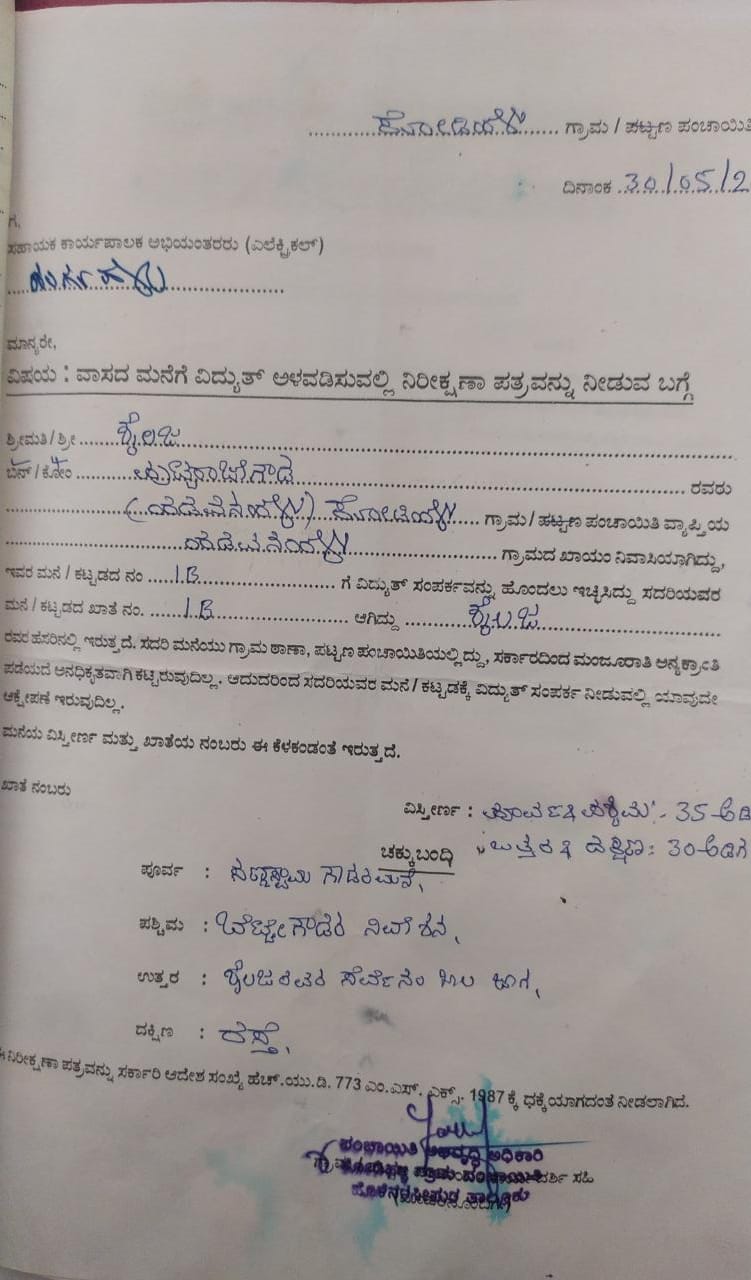 ಗ್ರಾಮ / ಪಟ್ಟಣ ಪಂಚಾಯಿತಿ
ದಿನಾಂಕ 30/05/2
ಗೆ,
ಸಹಾಯಕ ಕಾರ್ಯಪಾಲಕ ಅಭಿಯಂತರರು (ಎಲೆಕ್ಟ್ರಿಕಲ್)
ಮಾನ್ಯರೇ,
ವಿಷಯ : ವಾಸದ ಮನೆಗೆ ವಿದ್ಯುತ್ ಅಳವಡಿಸುವಲ್ಲಿ ನಿರೀಕ್ಷಣಾ ಪತ್ರವನ್ನು ನೀಡುವ ಬಗ್ಗೆ
ಶ್ರೀಮತಿ / ಶ್ರೀ ಶೈಲಜ
ಬಿನ್ / ಕೋಂ ರವರು
ಗ್ರಾಮ / ಪಟ್ಟಣ ಪಂಚಾಯಿತಿ ವ್ಯಾಪ್ತಿಯ
ಗ್ರಾಮದ ಖಾಯಂ ನಿವಾಸಿಯಾಗಿದ್ದು,
ಇವರ ಮನೆ / ಕಟ್ಟಡದ ನಂ 1B ಗೆ ವಿದ್ಯುತ್ ಸಂಪರ್ಕವನ್ನು ಹೊಂದಲು ಇಚ್ಛಿಸಿದ್ದು ಸದರಿಯವರ
ಮನೆ / ಕಟ್ಟಡದ ಖಾತೆ ನಂ. 1B ಆಗಿದ್ದು ಶೈಲಜ
ರವರ ಹೆಸರಿನಲ್ಲಿ ಇರುತ್ತದೆ. ಸದರಿ ಮನೆಯು ಗ್ರಾಮ ಠಾಣಾ, ಪಟ್ಟಣ ಪಂಚಾಯಿತಿಯಲ್ಲಿದ್ದು, ಸರ್ಕಾರದಿಂದ ಮಂಜೂರಾತಿ ಅನ್ಯಕ್ರಾಂತಿ
ಪಡೆಯದೆ ಅನಧಿಕೃತವಾಗಿ ಕಟ್ಟಿರುವುದಿಲ್ಲ. ಆದುದರಿಂದ ಸದರಿಯವರ ಮನೆ / ಕಟ್ಟಡಕ್ಕೆ ವಿದ್ಯುತ್ ಸಂಪರ್ಕ ನೀಡುವಲ್ಲಿ ಯಾವುದೇ
ಆಕ್ಷೇಪಣೆ ಇರುವುದಿಲ್ಲ.
ಮನೆಯ ವಿಸ್ತೀರ್ಣ ಮತ್ತು ಖಾತೆಯ ನಂಬರು ಈ ಕೆಳಕಂಡಂತೆ ಇರುತ್ತದೆ.
ಖಾತೆ ನಂಬರು
ವಿಸ್ತೀರ್ಣ : ಪೂರ್ವ ಪಶ್ಚಿಮ - 35 ಅಡಿ
ಉತ್ತರ ದಕ್ಷಿಣ : 30 ಅಡಿಗ
ಚಕ್ಕುಬಂದಿ
ಪೂರ್ವ : ಗೌಡರ ಮನೆ,
ಪಶ್ಚಿಮ : ಬೆಟ್ಟೇಗೌಡರ ನಿವೇಶನ,
ಉತ್ತರ : ಶೈಲಜರವರ ಜಾಗ,
ದಕ್ಷಿಣ : ರಸ್ತೆ,
ಈ ನಿರೀಕ್ಷಣಾ ಪತ್ರವನ್ನು ಸರ್ಕಾರಿ ಆದೇಶ ಸಂಖ್ಯೆ ಹೆಚ್.ಯು.ಡಿ. 773 ಎಂ.ಎಸ್. ಎಕ್ಸ್. 1987 ಕ್ಕೆ ಧಕ್ಕೆಯಾಗದಂತೆ ನೀಡಲಾಗಿದೆ.
ಪಂಚಾಯಿತಿ ಅಭಿವೃದ್ಧಿ ಅಧಿಕಾರಿ
ಸಹಿ
ಹೊಳೆನರಸೀಪುರ ತಾಲ್ಲೂಕು